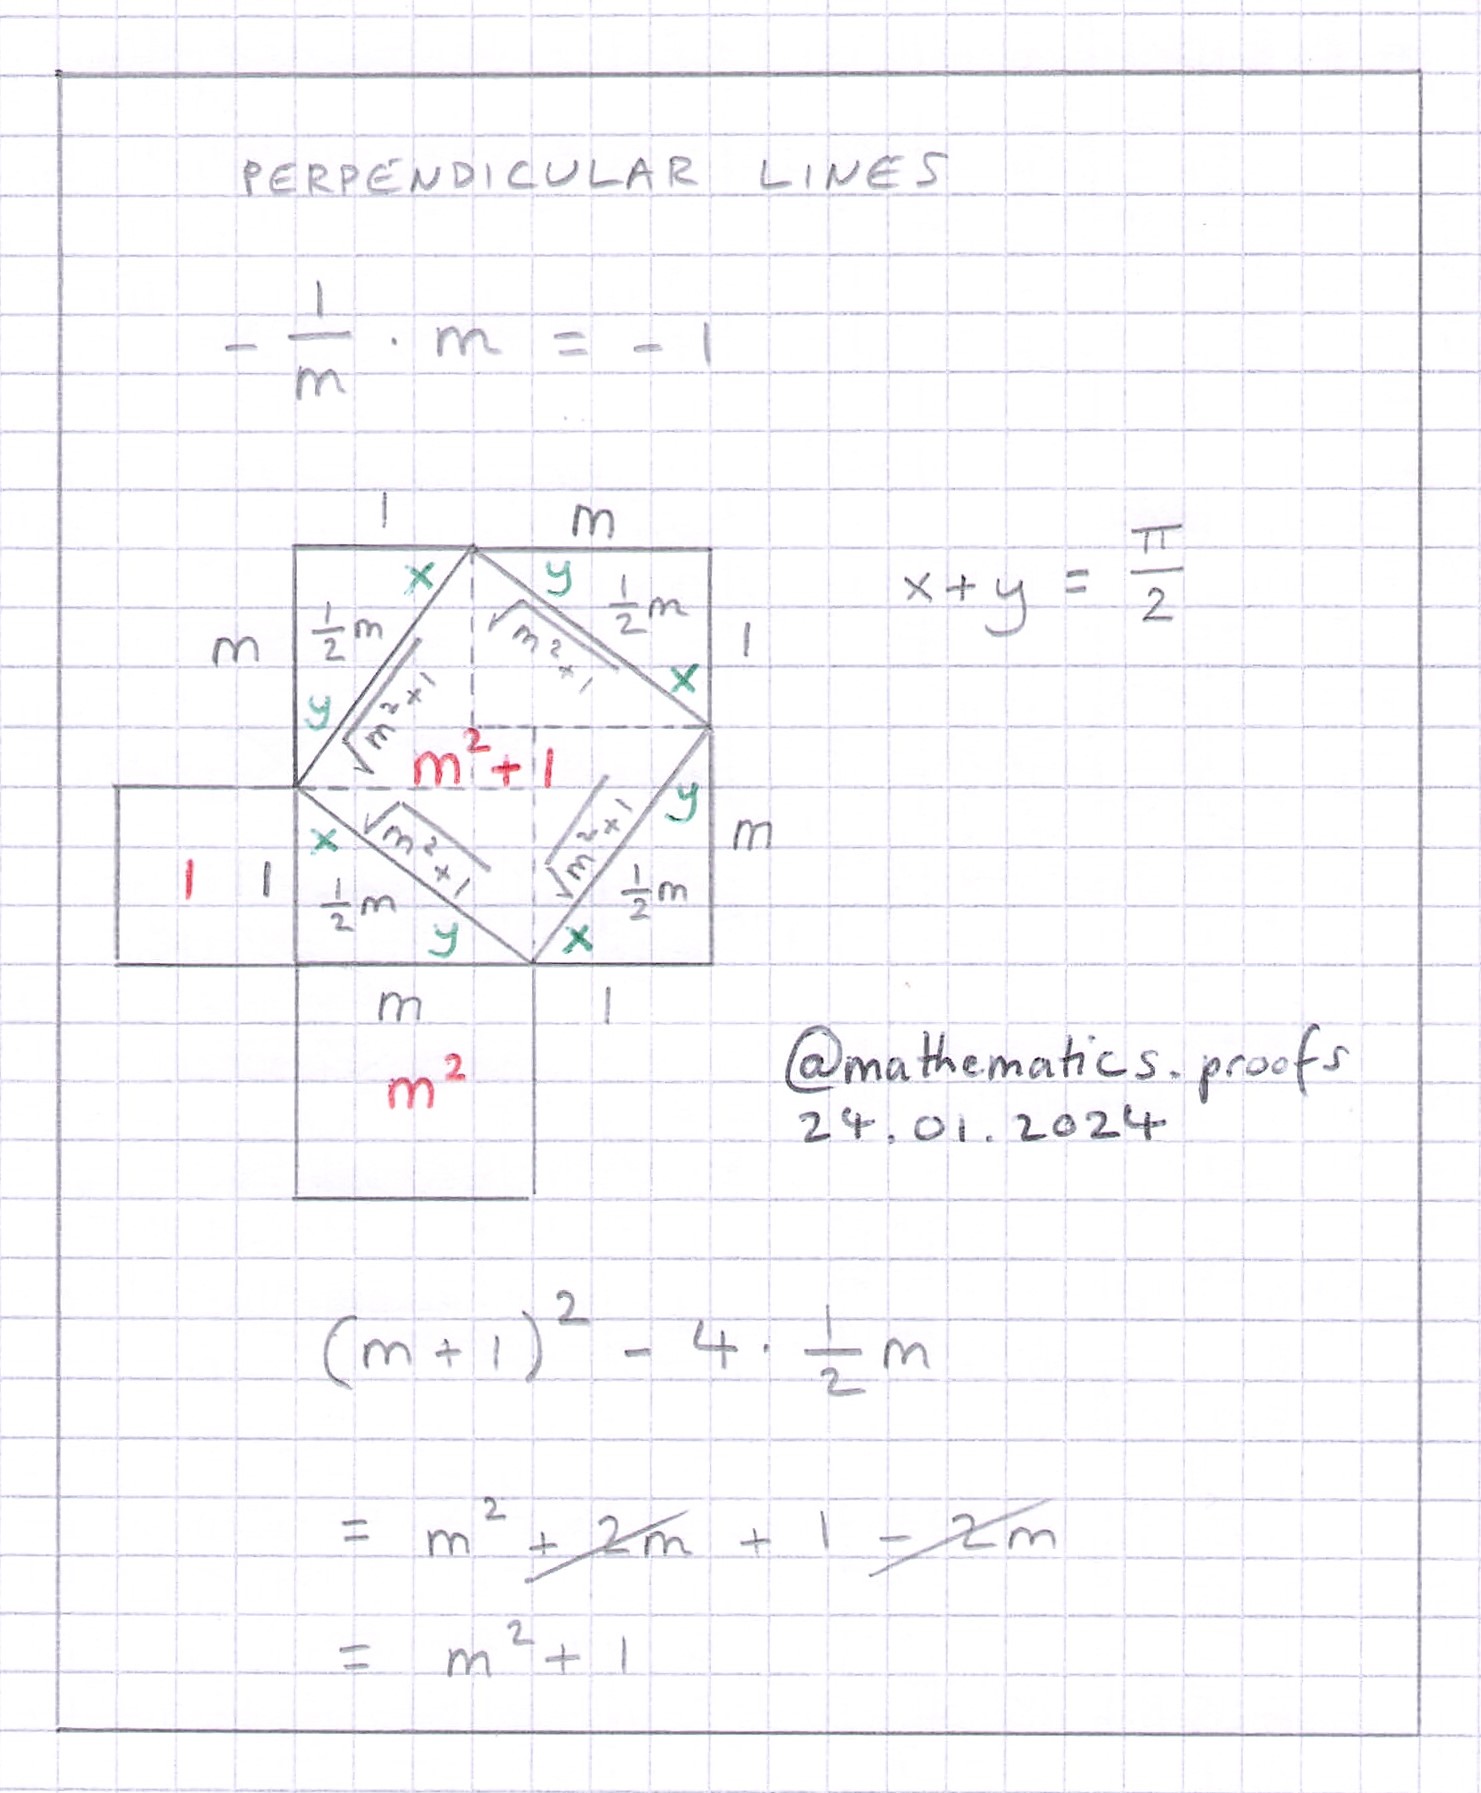 PERPENDICULAR LINES
- 1/m · m = - 1
1 m
x y
1/2 m 1/2 m
√m²+1 √m²+1
m 1
y x
x + y = π/2
m² + 1
y
x √m²+1 √m²+1 m
1 1 1/2 m 1/2 m
y x
m 1
m²
@mathematics.proofs
24.01.2024
(m + 1)² - 4 · 1/2 m
= m² + 2m + 1 - 2m
= m² + 1